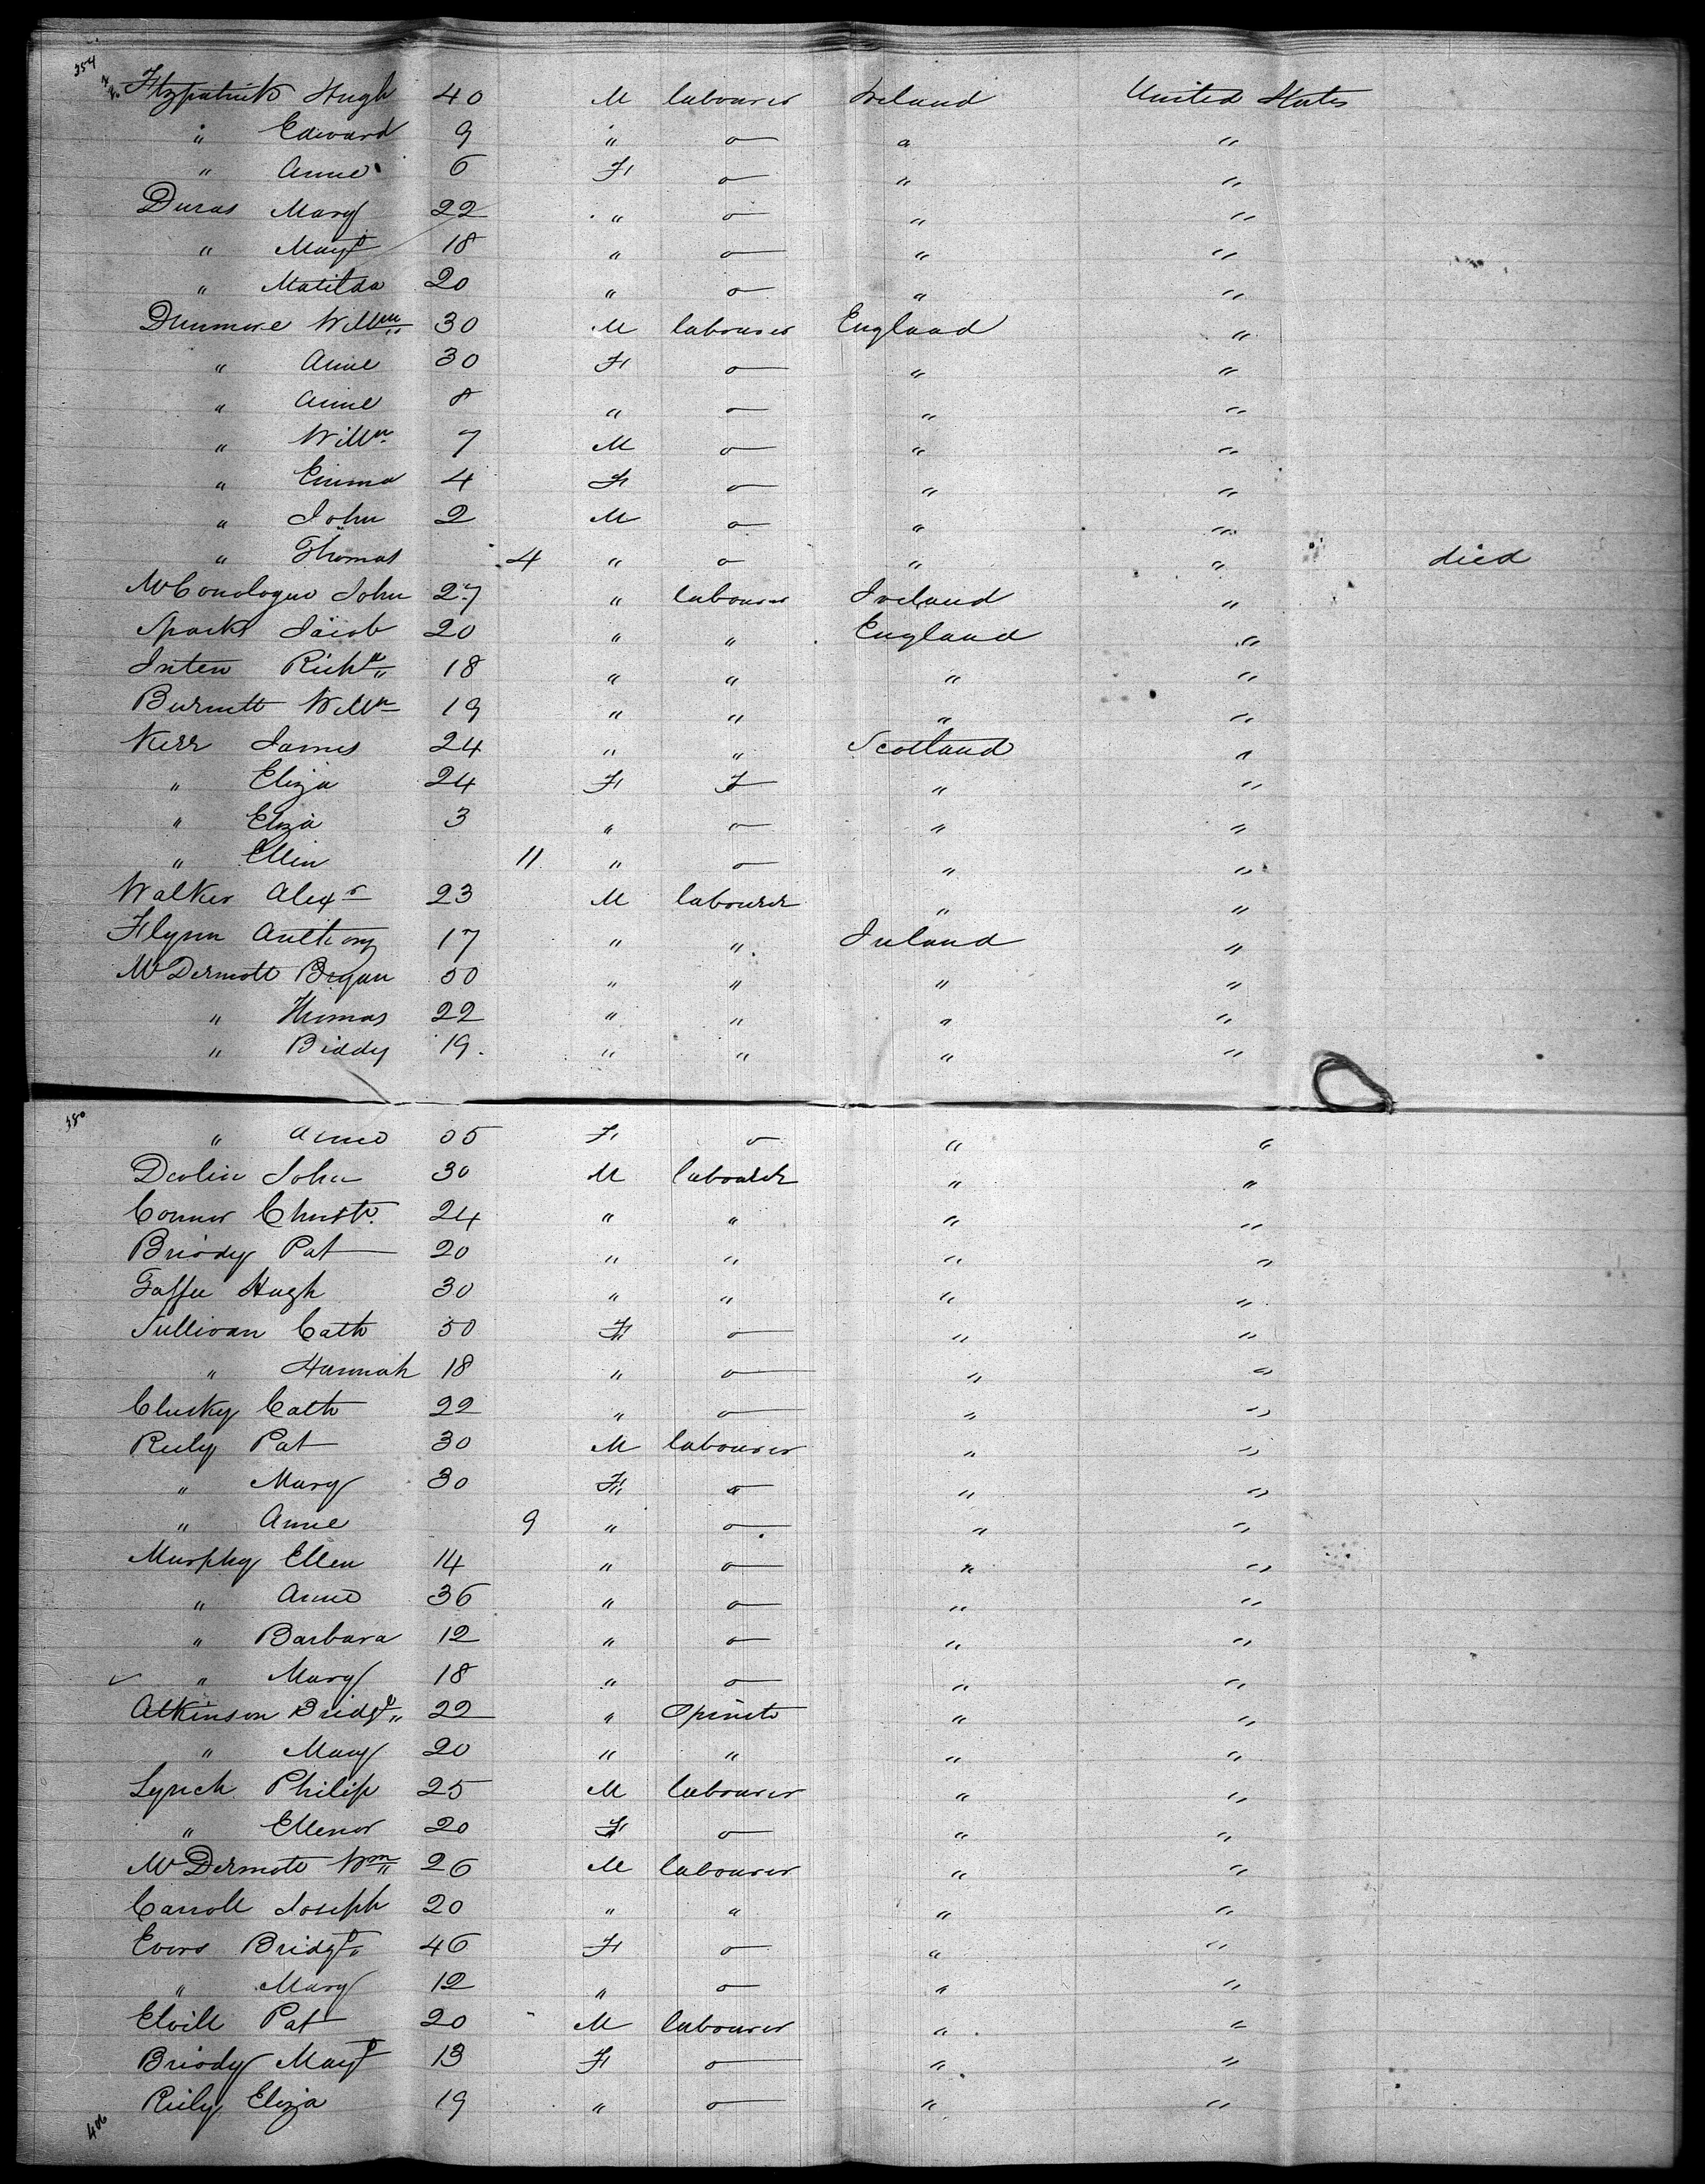 354
Fitzpatrick Hugh 40 M labourer Ireland United States
" Edward 9 " o " "
" Anne 6 F o " "
Duras Mary 22 " o " "
" Margt 18 " o " "
" Matilda 20 " o " "
Dunmore Willm 30 M labourer England "
" Anne 30 F o " "
" Anne 8 " o " "
" Willm 7 M o " "
" Emma 4 F o " "
" John 2 M o " "
" Thomas 4 " o " " died
McConologue John 27 " labourer Ireland "
Spark Jacob 20 " " England "
Inten Richd 18 " " " "
Burnett Willm 19 " " " "
Kerr James 24 " " Scotland "
" Eliza 24 F " "
" Eliza 3 " o " "
" Ellin 11 " o " "
Walker Alexr 23 M labourer " "
Flynn Anthony 17 " " Ireland "
McDermott Bryan 50 " " " "
" Thomas 22 " " " "
" Biddy 19 " " " "
380
" Anne 55 F o " "
Devlin John 30 M labourer " "
Connor Christr. 24 " " " "
Briody Pat 20 " " " "
Gaffee Hugh 30 " " " "
Sullivan Cath 50 F o " "
" Hannah 18 " o " "
Clusky Cath 22 " o " "
Reily Pat 30 M labourer " "
" Mary 30 F o " "
" Anne 9 " o " "
Murphy Ellen 14 " o " "
" Anne 36 " o " "
" Barbara 12 " o " "
" Mary 18 " o " "
Atkinson Bridgt 22 " Spinstr " "
" Mary 20 " " " "
Lynch Philip 25 M labourer " "
" Ellenor 20 F o " "
McDermott Wm 26 M labourer " "
Carroll Joseph 20 " " " "
Evers Bridgt 46 F o " "
" Mary 12 " o " "
Elvill Pat 20 M labourer " "
Briody Margt 13 F o " "
Reily Eliza 19 " o " "
406